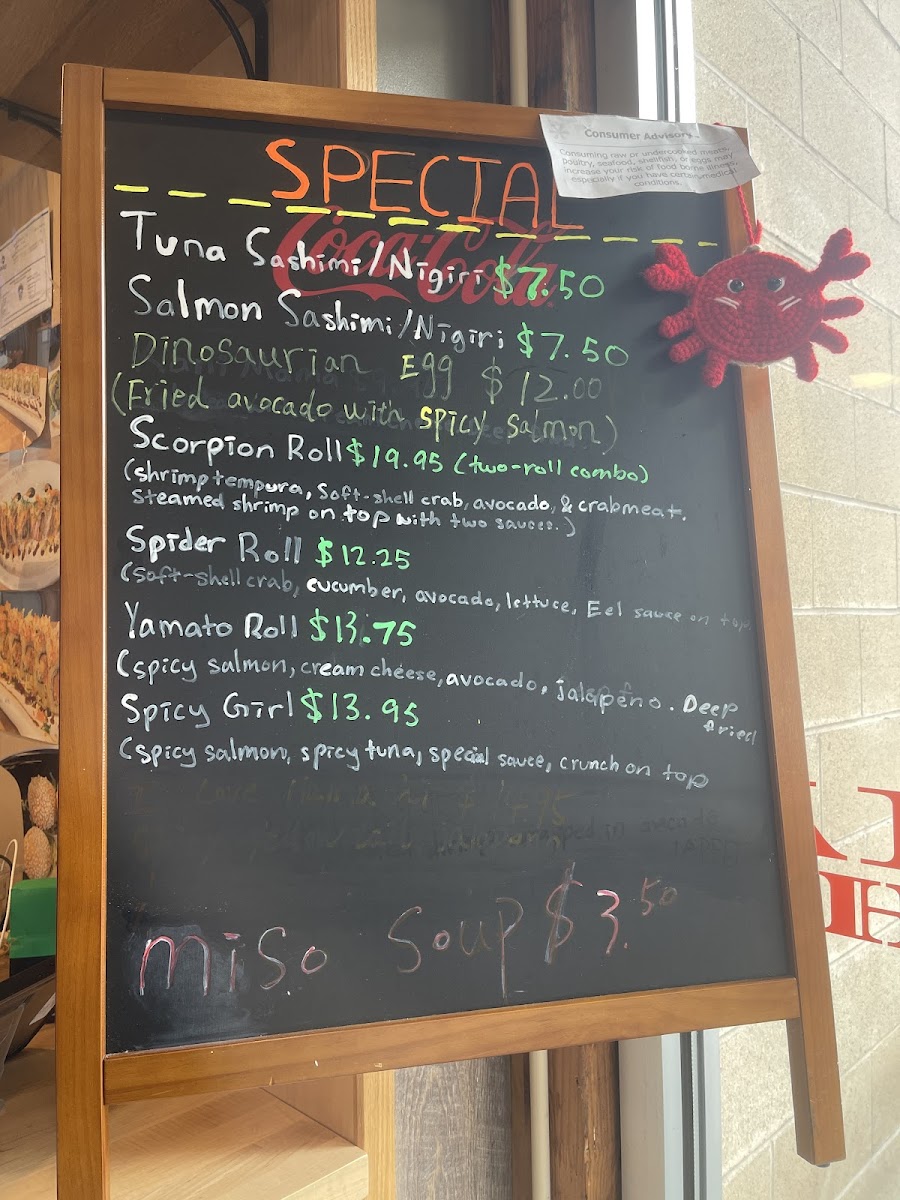 Consumer Advisory
Consuming raw or undercooked meats,
poultry, seafood, shellfish, or eggs may
increase your risk of food borne illness,
especially if you have certain medical
conditions.
SPECIAL
Coca-Cola
Tuna Sashimi/Nigiri $7.50
Salmon Sashimi/Nigiri $7.50
Dinosaurian Egg $12.00
(Fried avocado with spicy salmon)
Scorpion Roll $19.95 (two-roll combo)
(shrimp tempura, Soft-shell crab, avocado, & crabmeat.
steamed shrimp on top with two sauces.)
Spider Roll $12.25
(Soft-shell crab, cucumber, avocado, lettuce, Eel sauce on top
Yamato Roll $13.75
(spicy salmon, cream cheese, avocado, jalapeño. Deep
fried
Spicy Girl $13.95
(spicy salmon, spicy tuna, special sauce, crunch on top
miso Soup $3.50